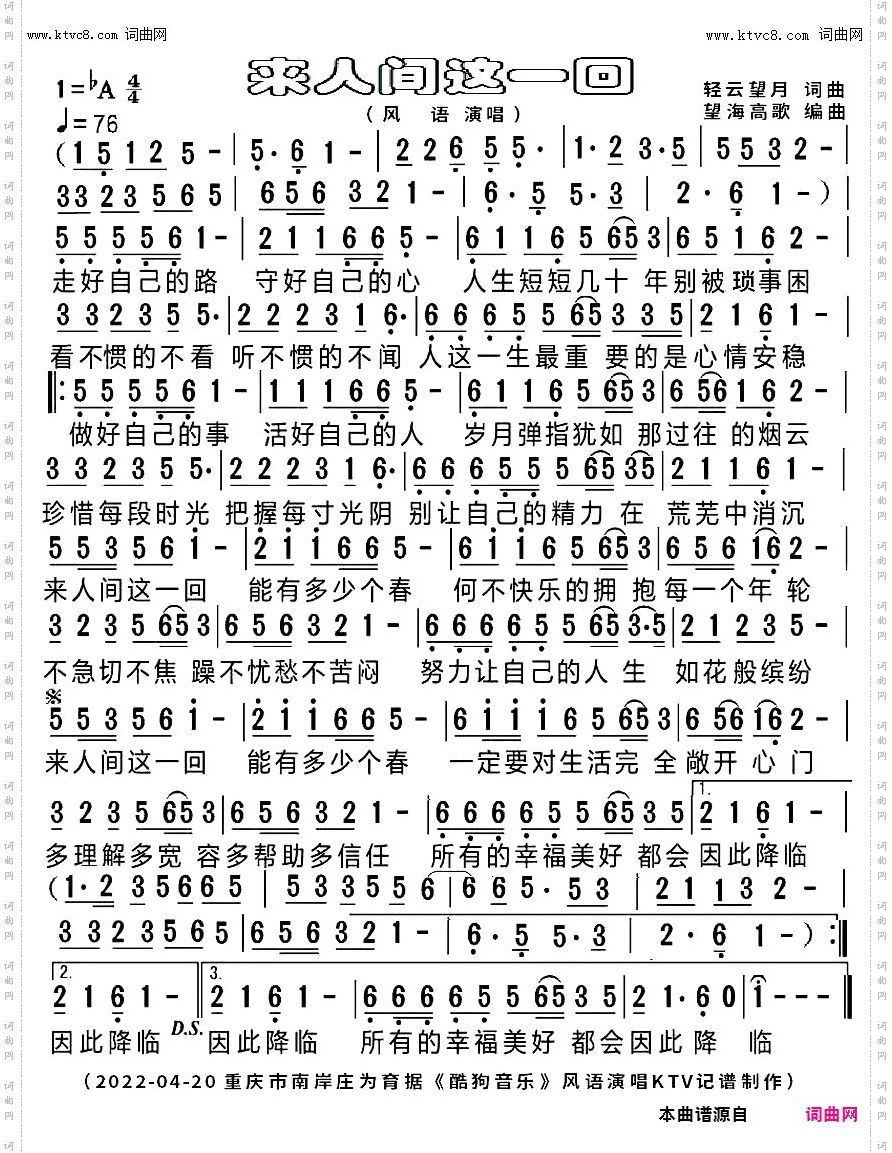 www.ktvc8.com 词曲网 www.ktvc8.com 词曲网
来人间这一回
1=♭A 4/4
轻云望月 词曲
(风 语 演唱)
望海高歌 编曲
♩=76
(1 5 1 2 5 - | 5· 6 1 - | 2 2 6 5 5· | 1· 2 3·5 | 5 5 3 2 - |
3 3 2 3 5 6 5 | 6 5 6 3 2 1 - | 6· 5 5· 3 | 2· 6 1 - )
5 5 5 5 6 1 - | 2 1 1 6 6 5 - | 6 1 1 6 5 65 3 | 6 5 1 6 2 - |
走好自己的路 守好自己的心 人生短短几十 年别被琐事困
3 3 2 3 5 5· | 2 2 2 3 1 6· | 6 6 6 5 5 65 3 3 5 | 2 1 6 1 - |
看不惯的不看 听不惯的不闻 人这一生最重 要的是心情安稳
‖: 5 5 5 5 6 1 - | 1 1 1 6 6 5 - | 6 1 1 6 5 65 3 | 6 56 1 2 - |
做好自己的事 活好自己的人 岁月弹指犹如 那过往 的烟云
3 3 2 3 5 5· | 2 2 2 3 1 6· | 6 6 6 5 5 5 65 35 | 2 1 1 6 1 - |
珍惜每段时光 把握每寸光阴 别让自己的精力 在 荒芜中消沉
5 5 3 5 6 1 - | 2 1 1 6 6 5 - | 6 1 1 6 5 65 3 | 6 5 6 16 2 - |
来人间这一回 能有多少个春 何不快乐的拥 抱每一个年 轮
3 2 3 5 65 3 | 6 5 6 3 2 1 - | 6 6 6 6 5 5 65 3·5 | 2 1 2 3 5 - |
不急切不焦 躁不忧愁不苦闷 努力让自己的人 生 如花般缤纷
5 5 3 5 6 1 - | 2 1 1 6 6 5 - | 6 1 1 1 6 5 65 3 | 6 56 16 2 - |
来人间这一回 能有多少个春 一定要对生活完 全敞开 心 门
1.
3 2 3 5 65 3 | 6 5 6 3 2 1 - | 6 6 6 6 5 5 65 3 5 | 2 1 6 1 - |
多理解多宽 容多帮助多信任 所有的幸福美好 都会 因此降临
(1· 2 3 5 6 6 5 | 5 3 3 5 6 - | 6 6 5· 3 5 | 2 1 1 3 2 - |
3 3 2 3 5 6 5 | 6 5 6 3 2 1 - | 6· 5 5· 3 | 2· 6 1 - ) :‖
2. 3.
2 1 6 1 - ‖ 2 1 6 1 - | 6 6 6 6 5 5 65 3 5 | 2 1· 6 0 | 1 - - - ‖
因此降临 D.S. 因此降临 所有的幸福美好 都会因此 降 临
(2022-04-20 重庆市南岸庄为育据《酷狗音乐》风语演唱KTV记谱制作)
本曲谱源自 词曲网